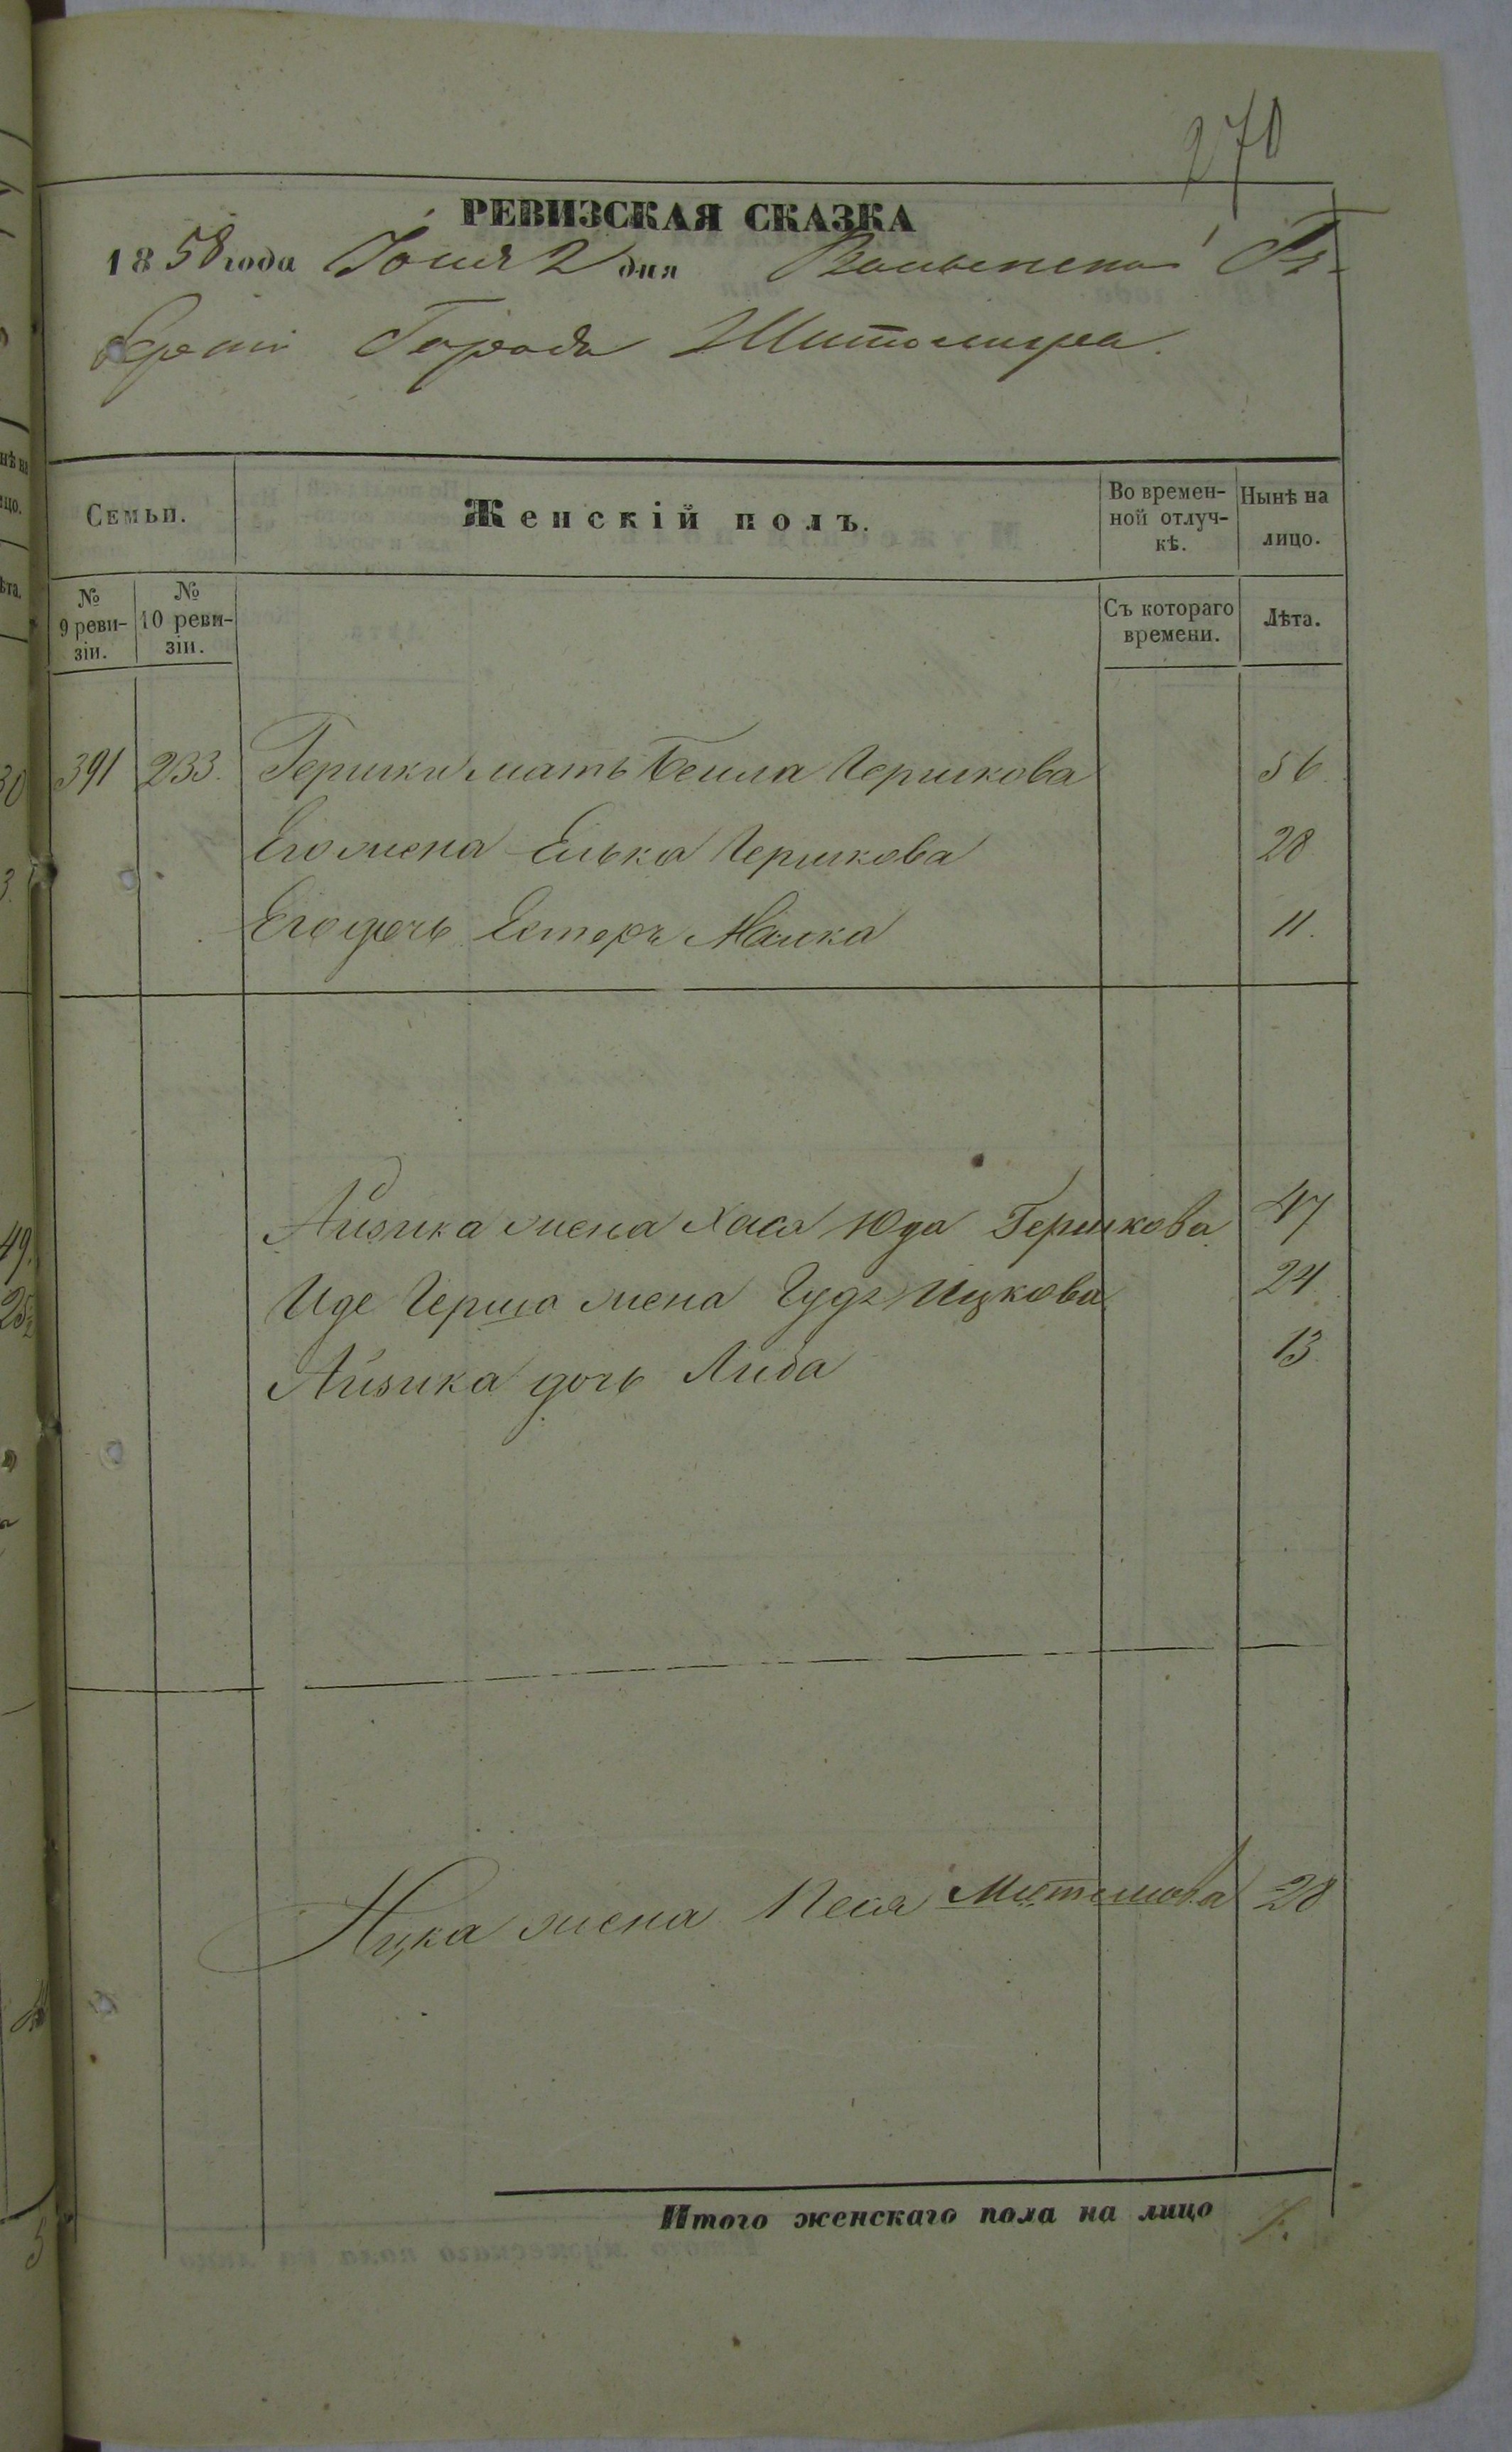 270
РЕВИЗСКАЯ СКАЗКА
1858 года Іюня 2 дня Волынской Гу-
берніи Города Житомира.
Семьи.
Женскій полъ.
Во времен-
ной отлуч-
кѣ.
Нынѣ на
лицо.
№
9 реви-
зіи.
№
10 реви-
зіи.
Съ котораго
времени.
Лѣта.
391 233. Гершки мать Бейла Гершкова 56
Его жена Елька Гершкова 28
Его дочь Естеръ Малка 11.
Айзика жена Хася Юда Гершкова 47
Иде Герша жена Гудя Ицкова 24
Айзика дочь Либа 13
Ицка жена Песя 28
Итого женскаго пола на лицо 7.